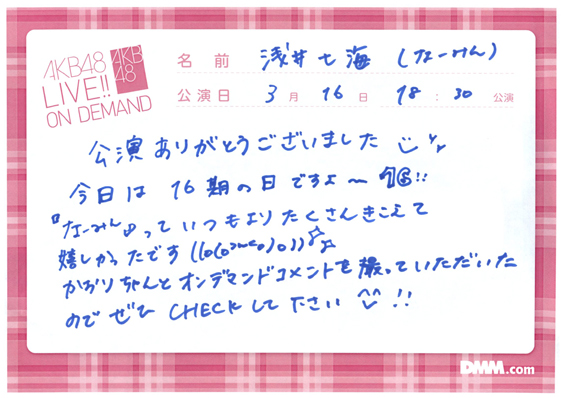 AKB48
LIVE!!
ON DEMAND
AKB
48
名前 浅井七海 (なーみん)
公演日 3月 16日 18:30 公演
公演ありがとうございました
今日は 16期の日ですよ〜 16!!
『なーみん』っていつもよりたくさんきこえて
嬉しかったです
かおりちゃんとオンデマンドコメントを撮っていただいた
のでぜひ CHECKして下さい ^^ !!
DMM.com